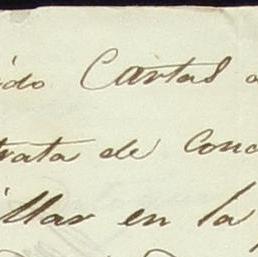 ido Cartas a
trata de conc
illar en la